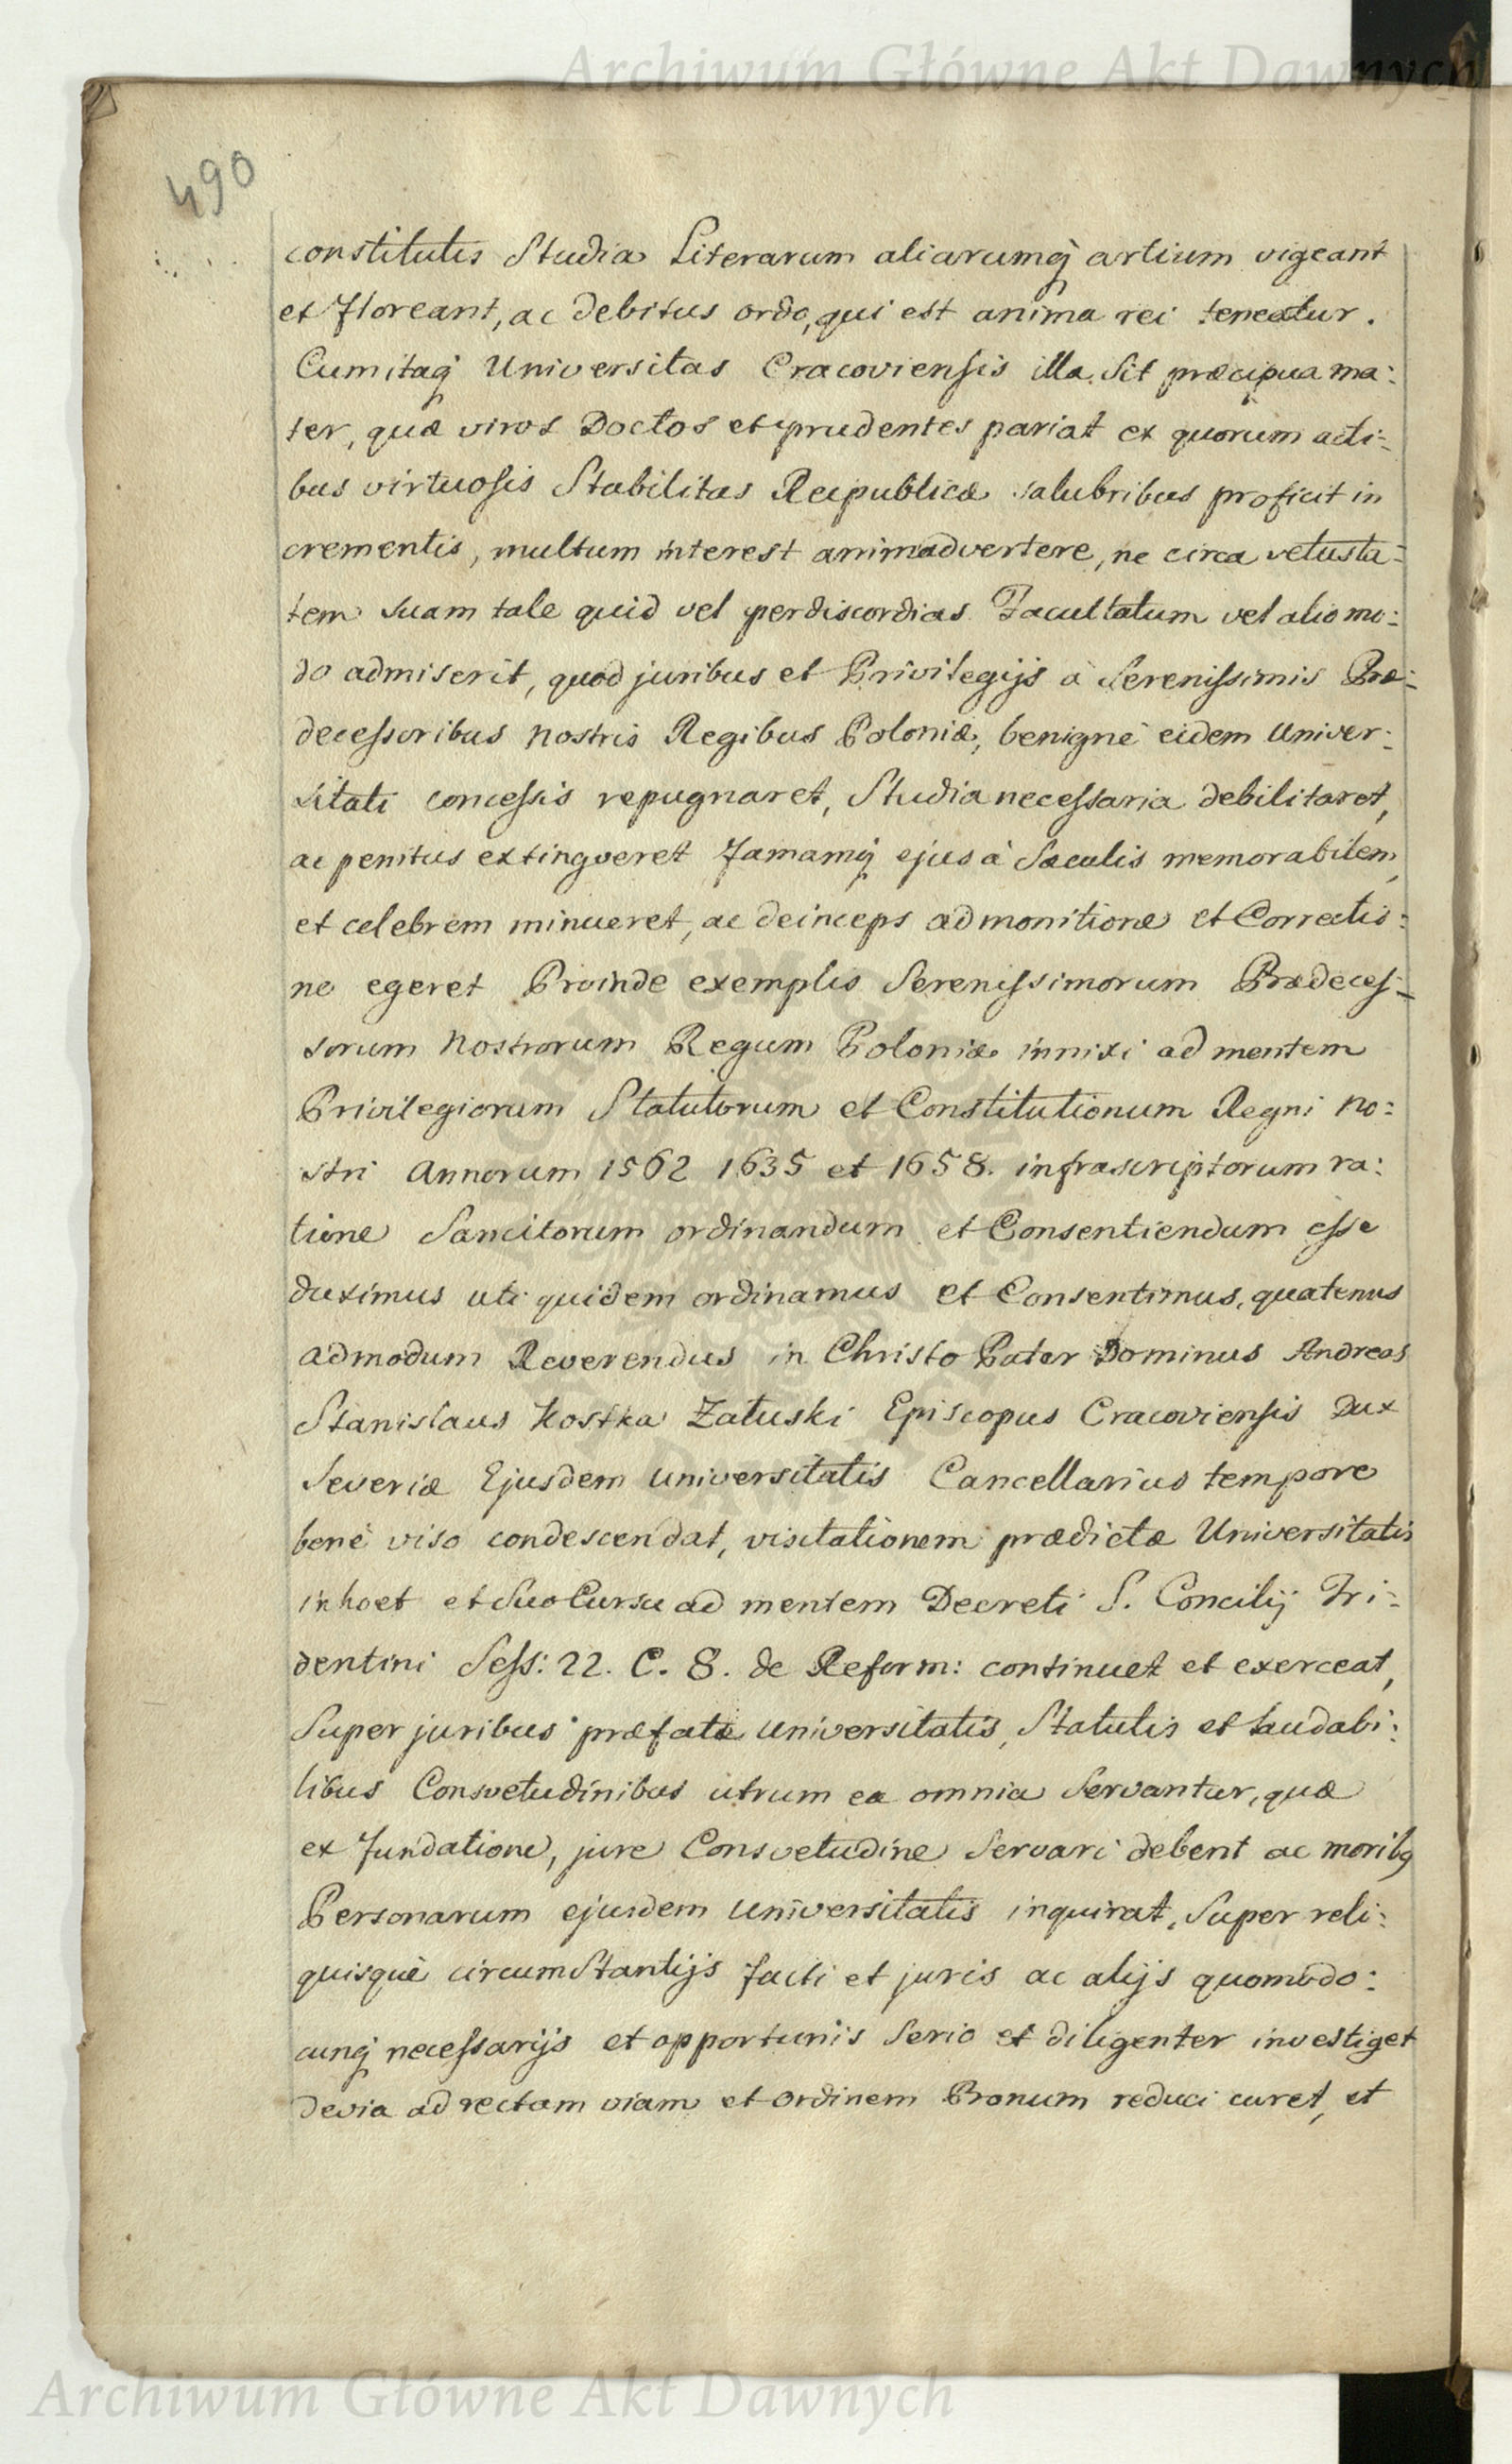 Archiwum Główne Akt Dawnych
490
constitutis Studia Literarum aliarumq́ artium vigeant
et floreant, ac debitus ordo, qui est anima rei teneatur.
Cumitaq́ Universitas Cracoviensis illa sit præcipua ma:
ter, quæ viros Doctos et prudentes pariat ex quorum acti:
bus virtuosis Stabilitas Reipublicæ salubribus proficit in
crementis, multum interest animadvertere, ne circa vetusta:
tem suam tale quid vel perdiscordias Facultatum vel alio mo:
do admiserit, quod juribus et Privilegijs à Serenissimis Præ:
decessoribus nostris Regibus Poloniæ, benignè eidem Univer:
sitati concessis repugnaret, Studia necessaria debilitaret,
ac penitus extingveret famamq́ ejus à Sæculis memorabilem,
et celebrem minueret, ac deinceps admonitione et Correctio:
ne egeret Proinde exemplis Serenissimorum Prædeces:
sorum Nostrorum Regum Poloniæ innixi ad mentem
Privilegiorum Statutorum et Constitutionum Regni no:
stri Annorum 1562 1635 et 1658. infrascriptorum ra:
tione Sancitorum ordinandum et Consentiendum esse
duximus uti quidem ordinamus et Consentimus, quatenus
admodum Reverendus in Christo Pater Dominus Andreas
Stanislaus Kostka Załuski Episcopus Cracoviensis Dux
Severiæ Ejusdem Universitatis Cancellarius tempore
benè viso condescendat, visitationem prædictæ Universitatis
inhoet et suo Cursu ad mentem Decreti S. Concilij Tri:
dentini Sess: 22. C. 8. de Reform: continuet et exerceat,
Super juribus præfatæ Universitatis, Statutis et laudabi:
libus Consvetudinibus utrum ea omnia Servantur, quæ
ex fundatione, jure Consvetudine Servari debent ac moribq
Personarum ejusdem Universitatis inquirat, Super reli:
quisquè circumstantijs facti et juris ac alijs quomodo:
cunq́ necessarijs et opportunis Serio et diligenter investiget
devia ad rectam viam et ordinem Bonum reduci curet, et
Archiwum Główne Akt Dawnych